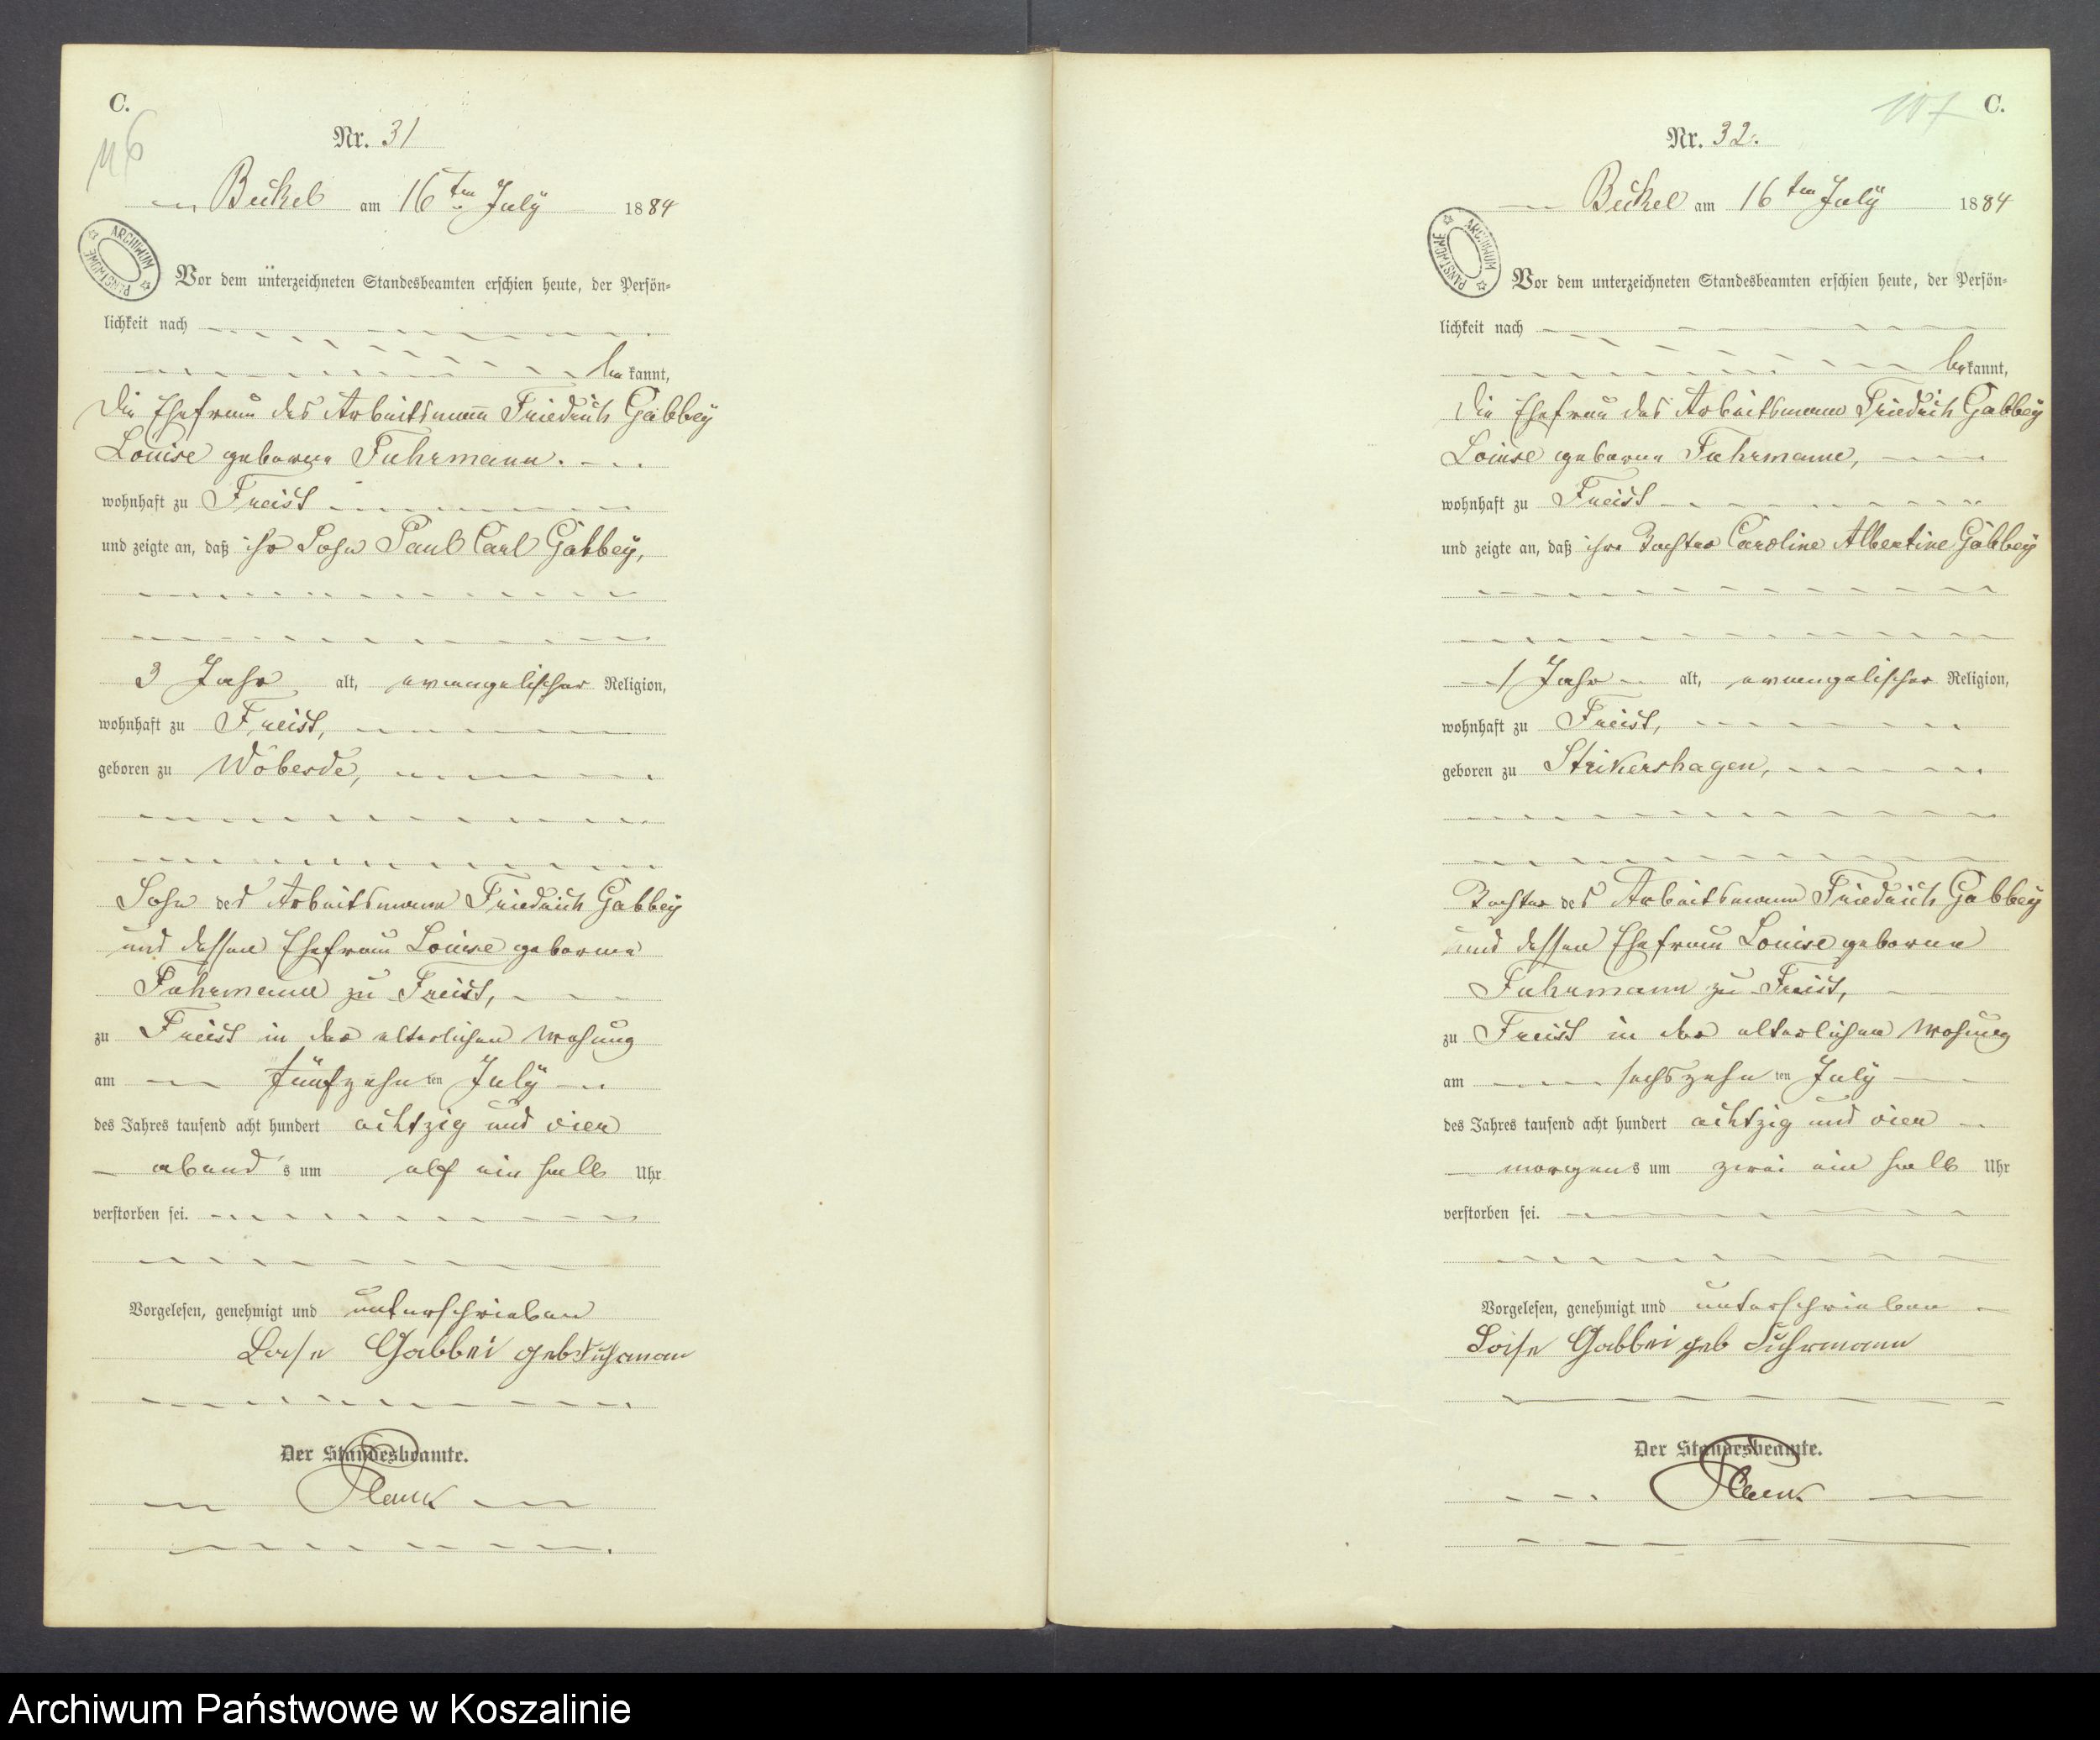 C.
116
Nr. 31
Beckel am 16ten July 1884
ARCHIWUM PAŃSTWOWE
Vor dem unterzeichneten Standesbeamten erschien heute, der Persön-
lichkeit nach
bekannt,
Die Ehefrau des Arbeitsmann Friedrich Gabbey
Louise geborne Fuhrmann.
wohnhaft zu Freist
und zeigte an, daß ihr Sohn Paul Carl Gabbey,
3 Jahr alt, evangelischer Religion,
wohnhaft zu Freist,
geboren zu Wobesde,
Sohn des Arbeitsmann Friedrich Gabbey
und dessen Ehefrau Louise geborne
Fuhrmann zu Freist,
zu Freist in der elterlichen Wohung
am fünfzehnten July
des Jahres tausend acht hundert achtzig und vier
abend's um elf ein halb Uhr
verstorben sei.
Vorgelesen, genehmigt und unterschrieben
Loise Gabbei geb Fuhrman
Der Standesbeamte.
C.
117
Nr. 32.
Beckel am 16ten July 1884
ARCHIWUM PAŃSTWOWE
Vor dem unterzeichneten Standesbeamten erschien heute, der Persön-
lichkeit nach
bekannt,
Die Ehefrau des Arbeitsmann Friedrich Gabbey
Louise geborne Fuhrmann,
wohnhaft zu Freist
und zeigte an, daß ihre Tochter Caroline Albertine Gabbey
1 Jahr alt, evangelischer Religion,
wohnhaft zu Freist,
geboren zu Strikershagen,
Tochter des Arbeitsmann Friedrich Gabbey
und dessen Ehefrau Louise geborne
Fuhrmann zu Freist,
zu Freist in der elterlichen Wohung
am sechszehnten July
des Jahres tausend acht hundert achtzig und vier
morgens um zwei ein halb Uhr
verstorben sei.
Vorgelesen, genehmigt und unterschrieben
Loise Gabbei geb Fuhrmann
Der Standesbeamte.
Archiwum Państwowe w Koszalinie